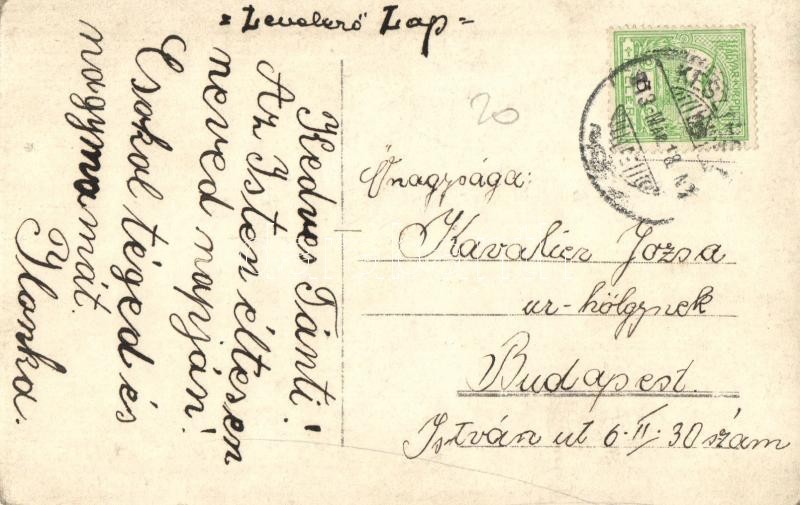 = Levelező Lap =
Kedves Tánti!
Az Isten éltesen
neved napján!
Csokol téged és
nagymamát.
Ilonka.
20
Őnagysága:
Kavalier Jozsa
ur-hölgynek
Budapest.
István ut 6. II. 30 szám